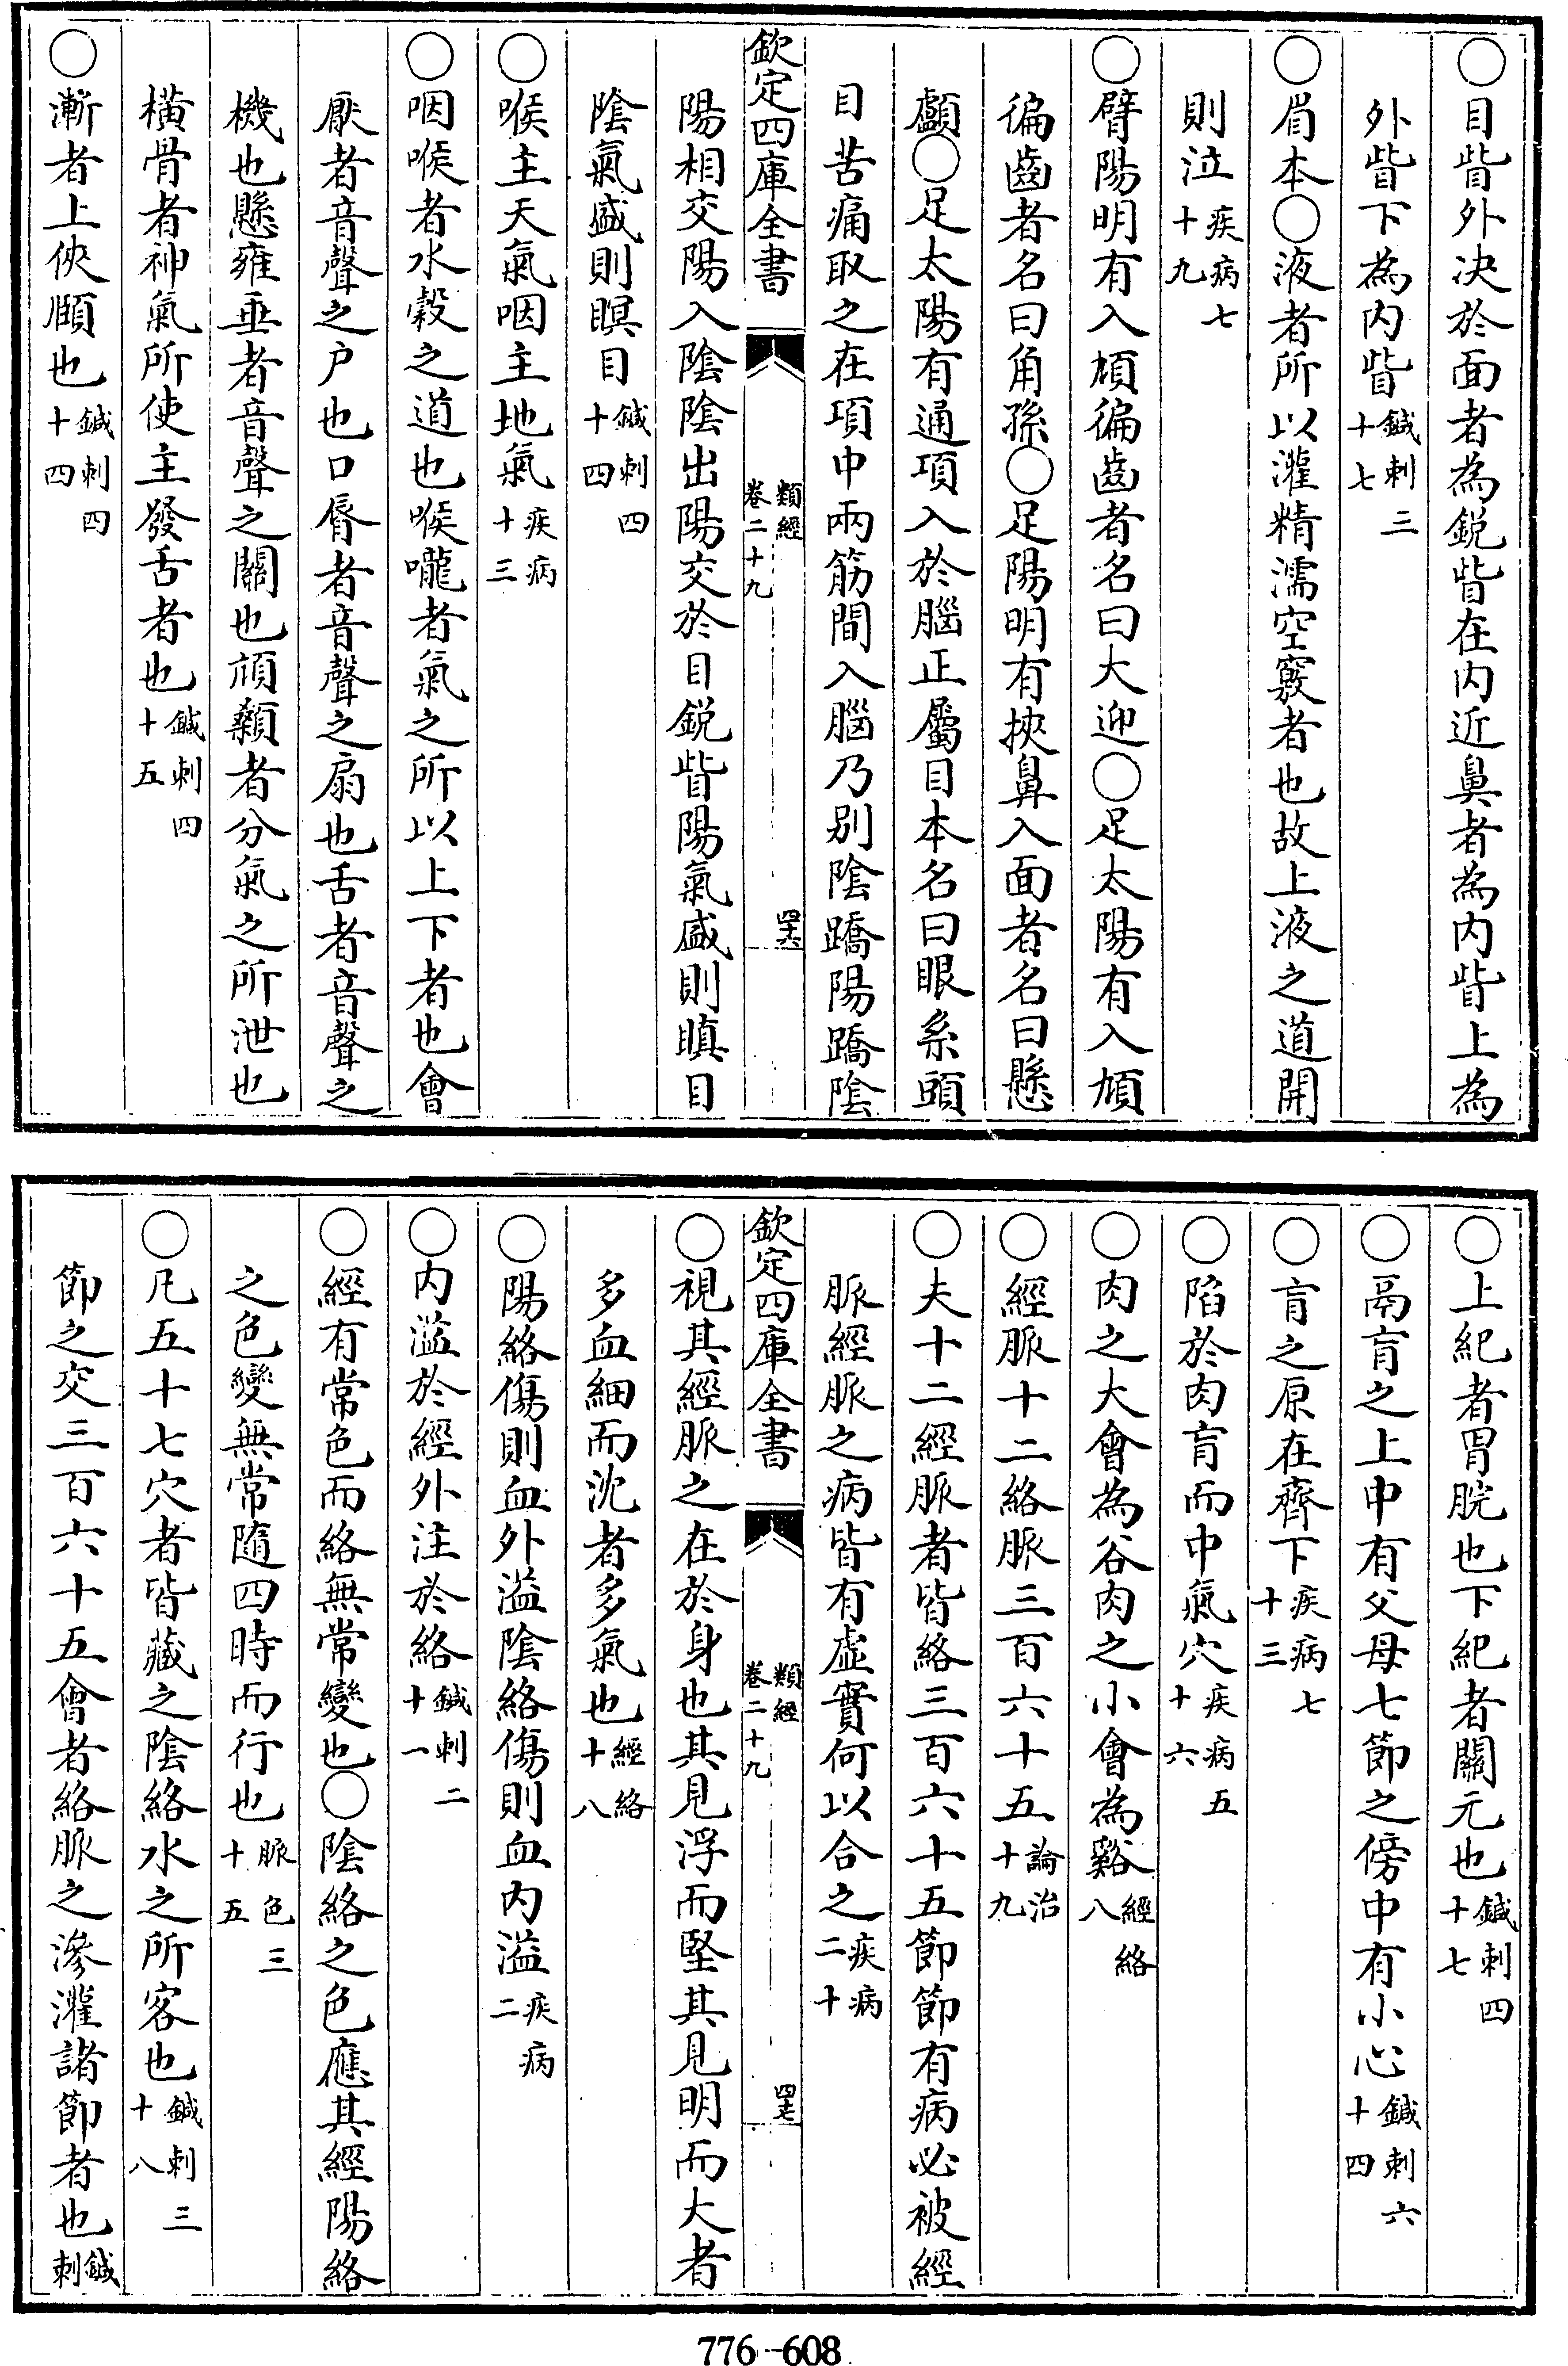 ○目眥外決於面者為鋭眥在内近鼻者為内眥上為
外眥下為内眥鍼刺三十七
○眉本○液者所以灌精濡空竅者也故上液之道開
則泣疾病七十九
○臂陽明有入頄徧齒者名曰大迎○足太陽有入頄
徧齒者名曰角孫○足陽明有挾鼻入面者名曰懸
顱○足太陽有通項入於腦正屬目本名曰眼系頭
目苦痛取之在項中兩筋間入腦乃别陰蹻陽蹻陰
欽定四庫全書 類經卷二十九 四十六
陽相交陽入陰陰出陽交於目鋭眥陽氣盛則瞋目
陰氣盛則瞑目鍼刺四十四
○喉主天氣咽主地氣疾病十三
○咽喉者水穀之道也喉嚨者氣之所以上下者也會
厭者音聲之户也口脣者音聲之扇也舌者音聲之
機也懸雍垂者音聲之關也頏顙者分氣之所泄也
横骨者神氣所使主發舌者也鍼刺四十五
○漸者上俠頤也鍼刺四十四
○上紀者胃脘也下紀者關元也鍼刺四十七
○鬲肓之上中有父母七節之傍中有小心鍼刺六十四
○肓之原在齊下疾病七十三
○陷於肉肓而中氣穴疾病五十六
○肉之大會為谷肉之小會為谿經絡八
○經脈十二絡脈三百六十五論治十九
○夫十二經脈者皆絡三百六十五節節有病必被經
脈經脈之病皆有虛實何以合之疾病二十
欽定四庫全書 類經卷二十九 四十七
○視其經脈之在於身也其見浮而堅其見明而大者
多血細而沈者多氣也經絡十八
○陽絡傷則血外溢陰絡傷則血内溢疾病二
○内溢於經外注於絡鍼刺二十一
○經有常色而絡無常變也○陰絡之色應其經陽絡
之色變無常隨四時而行也脈色三十五
○凡五十七穴者皆藏之陰絡水之所客也鍼刺三十八
節之交三百六十五會者絡脈之滲灌諸節者也鍼刺
776-608